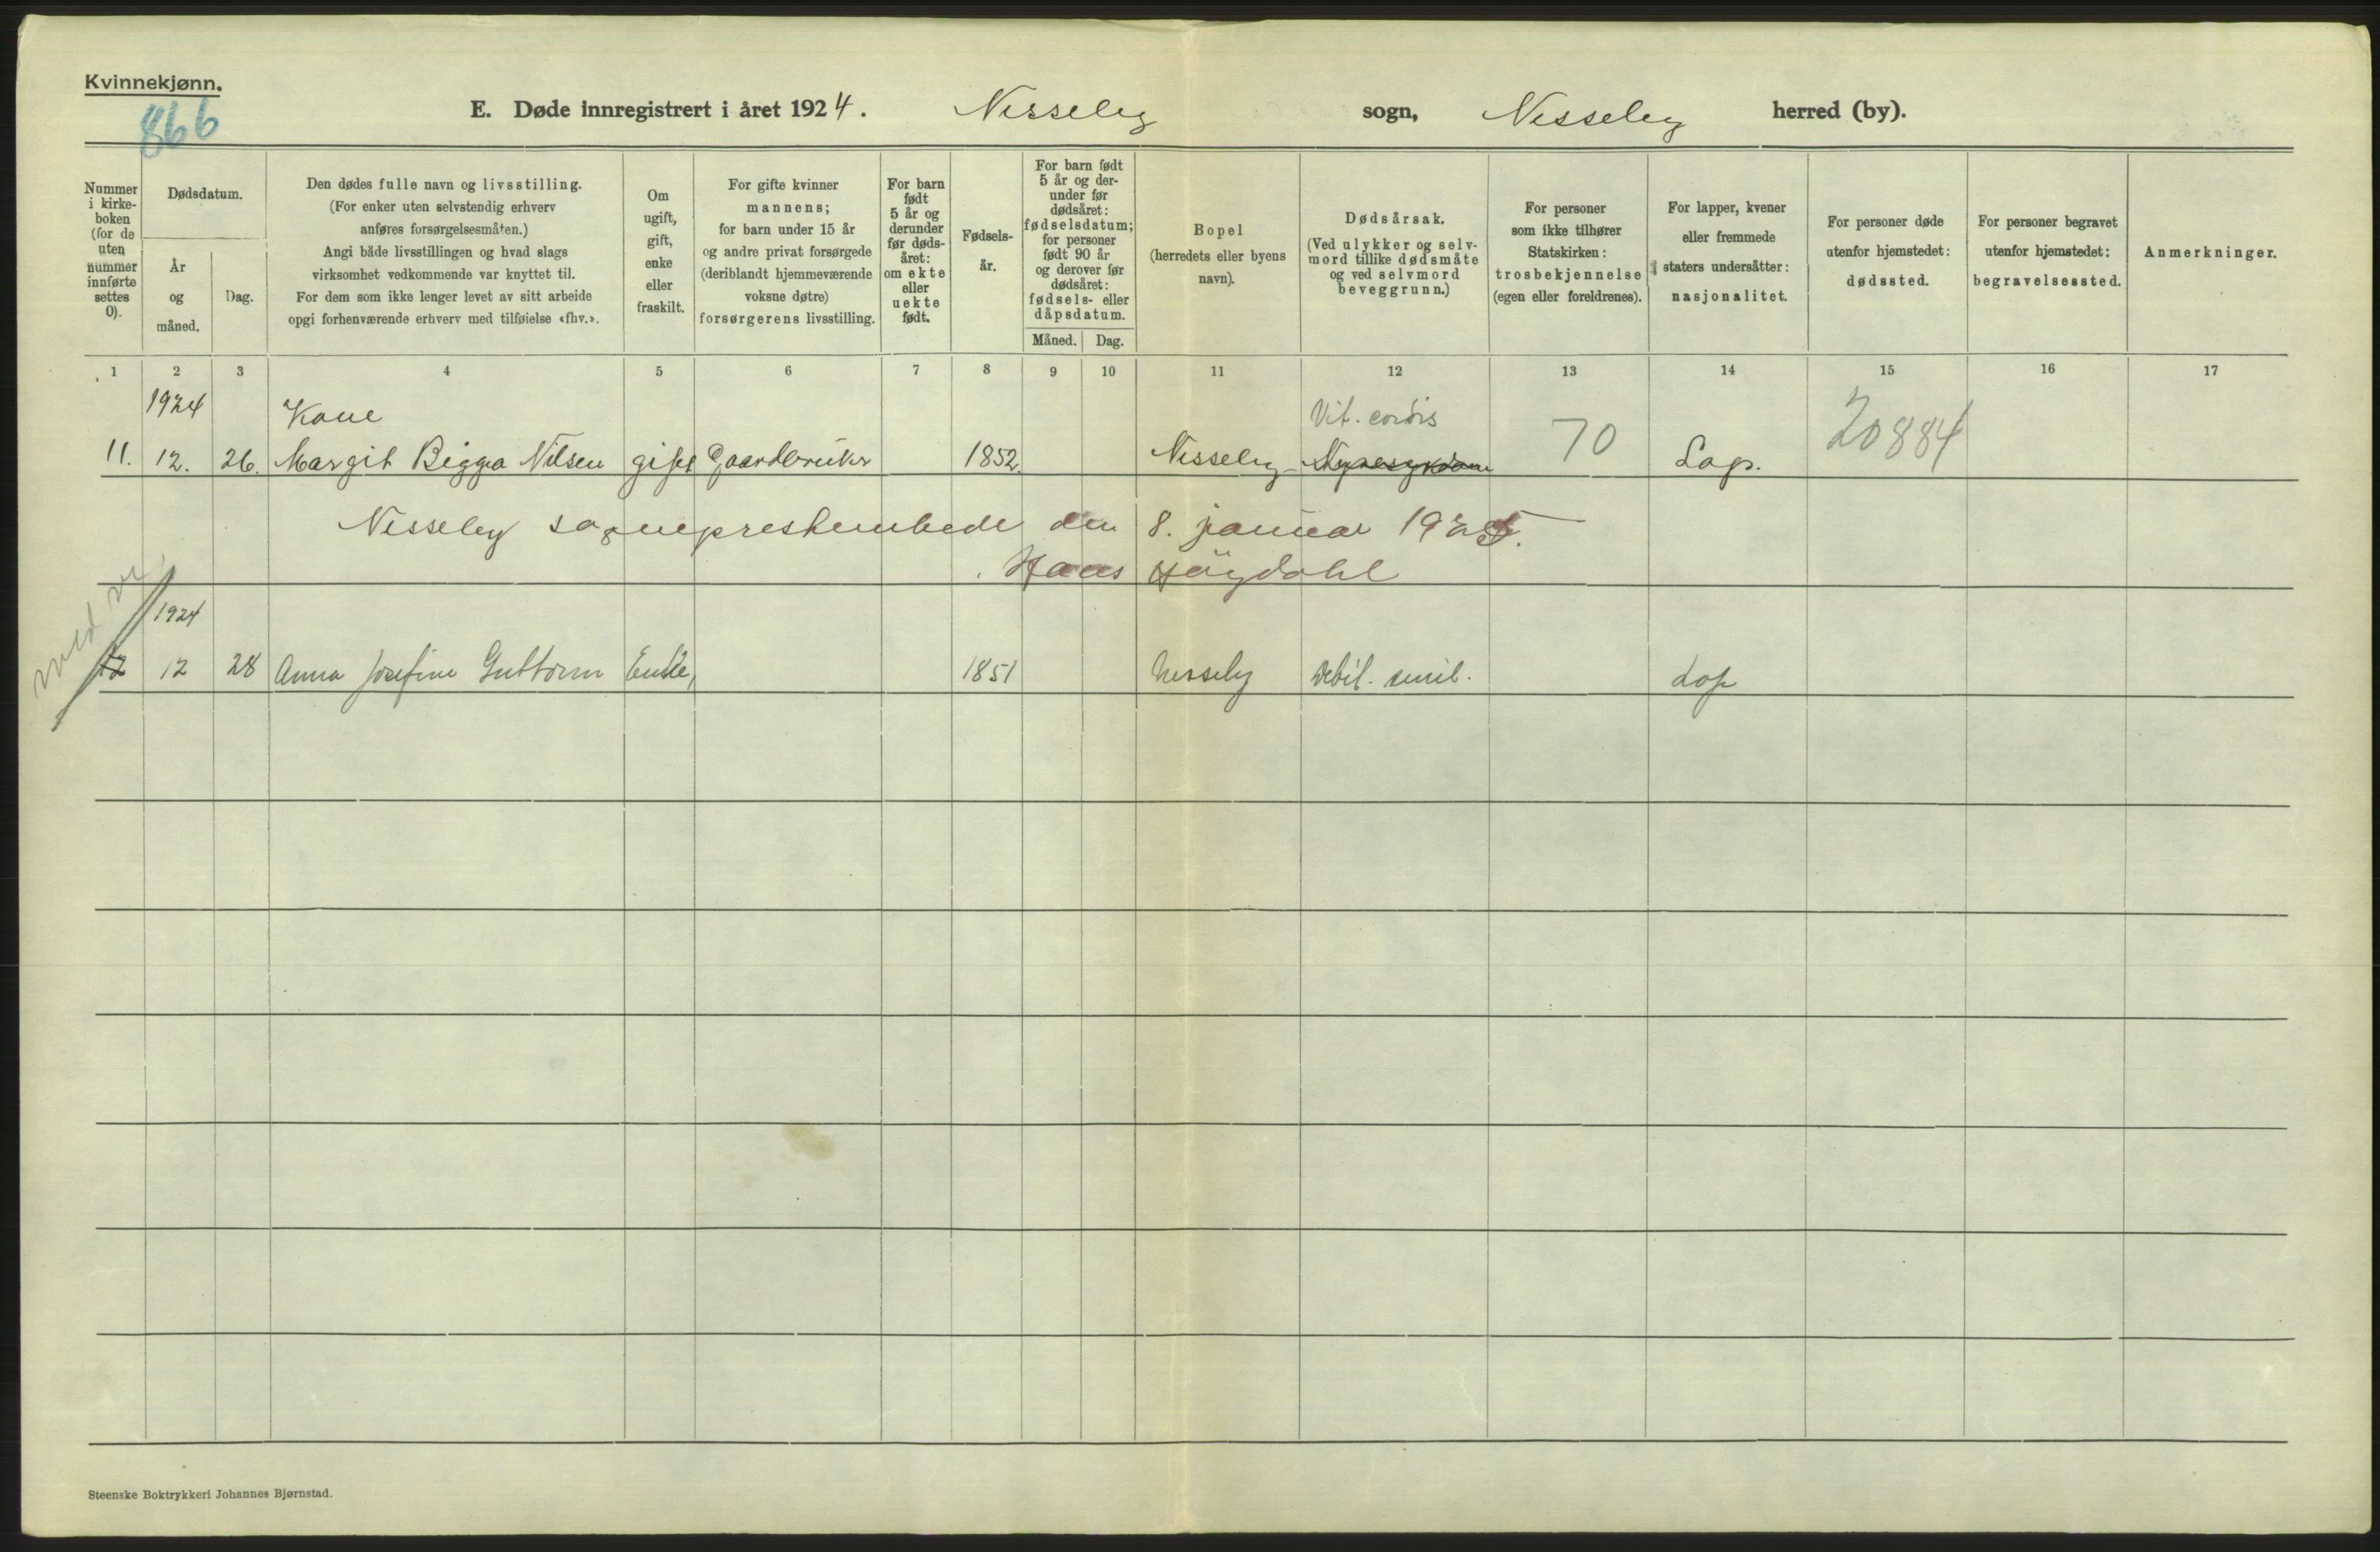 Kvinnekjønn.
866
E. Døde innregistrert i året 1924. Nesseby sogn, Nesseby herred (by).
Nummer i kirke-boken (for de uten nummer innførte settes 0).
Dødsdatum.
År og måned.
Dag.
Den dødes fulle navn og livsstilling.
(For enker uten selvstendig erhverv
anføres forsørgelsesmåten.)
Angi både livsstillingen og hvad slags
virksomhet vedkommende var knyttet til.
For dem som ikke lenger levet av sitt arbeide
opgi forhenværende erhverv med tilføielse «fhv.».
Om
ugift,
gift,
enke
eller
fraskilt.
For gifte kvinner
mannens;
for barn under 15 år
og andre privat forsørgede
(deriblandt hjemmeværende
voksne døtre)
forsørgerens livsstilling.
For barn
født
5 år og
derunder
før døds-
året:
om ekte
eller
uekte
født.
Fødsels-
år.
For barn født
5 år og der-
under før
dødsåret:
fødselsdatum;
for personer
født 90 år
og derover før
dødsåret:
fødsels- eller
dåpsdatum.
Måned. Dag.
Bopel
(herredets eller byens
navn).
Dødsårsak.
(Ved ulykker og selv-
mord tillike dødsmåte
og ved selvmord
beveggrunn.)
For personer
som ikke tilhører
Statskirken:
trosbekjennelse
(egen eller foreldrenes).
For lapper, kvener
eller fremmede
staters undersåtter:
nasjonalitet.
For personer døde
utenfor hjemstedet:
dødssted.
For personer begravet
utenfor hjemstedet:
begravelsessted.
Anmerkninger.
1 2 3 4 5 6 7 8 9 10 11 12 13 14 15 16 17
1924 Kone Vit. cordis
11. 12. 26. Margit Bigga Nilsen gift Gaardbruker 1852. Nesseby Nyresykdom 70 Lap. 20884
Nesseby sogneprestembede den 8. januar 1925.
Hans Høgdahl
1924
12 12 28 Anna Josefine Guttorm Enke, 1851 Nesseby Debil. senil. Lap
Steenske Boktrykkeri Johannes Bjørnstad.